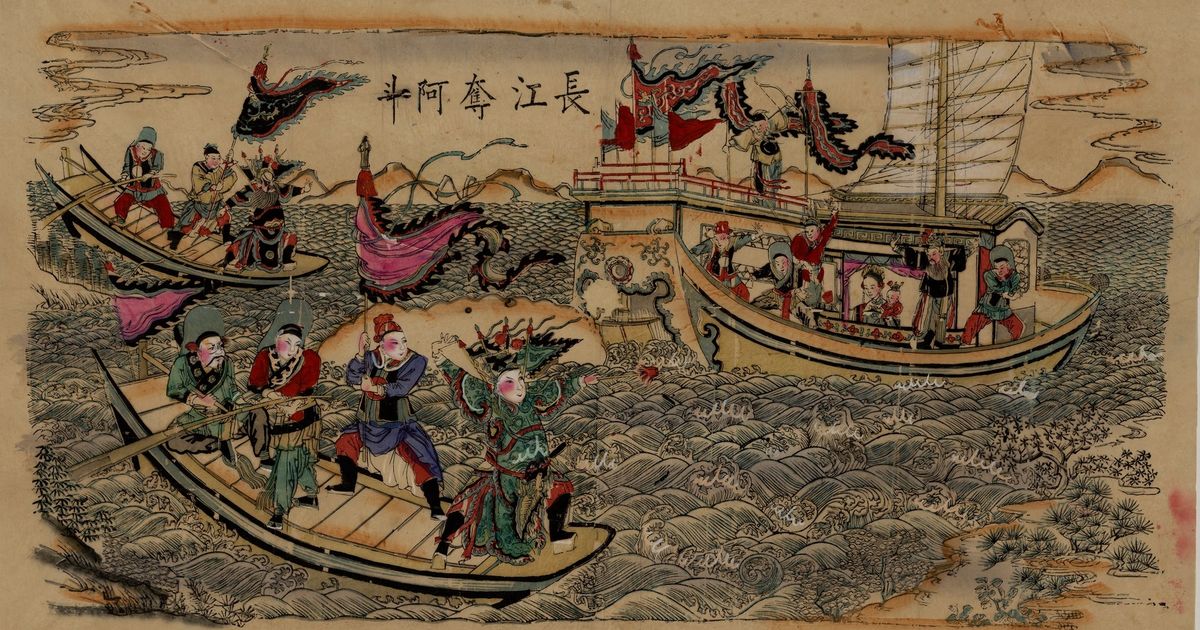 長江奪阿斗